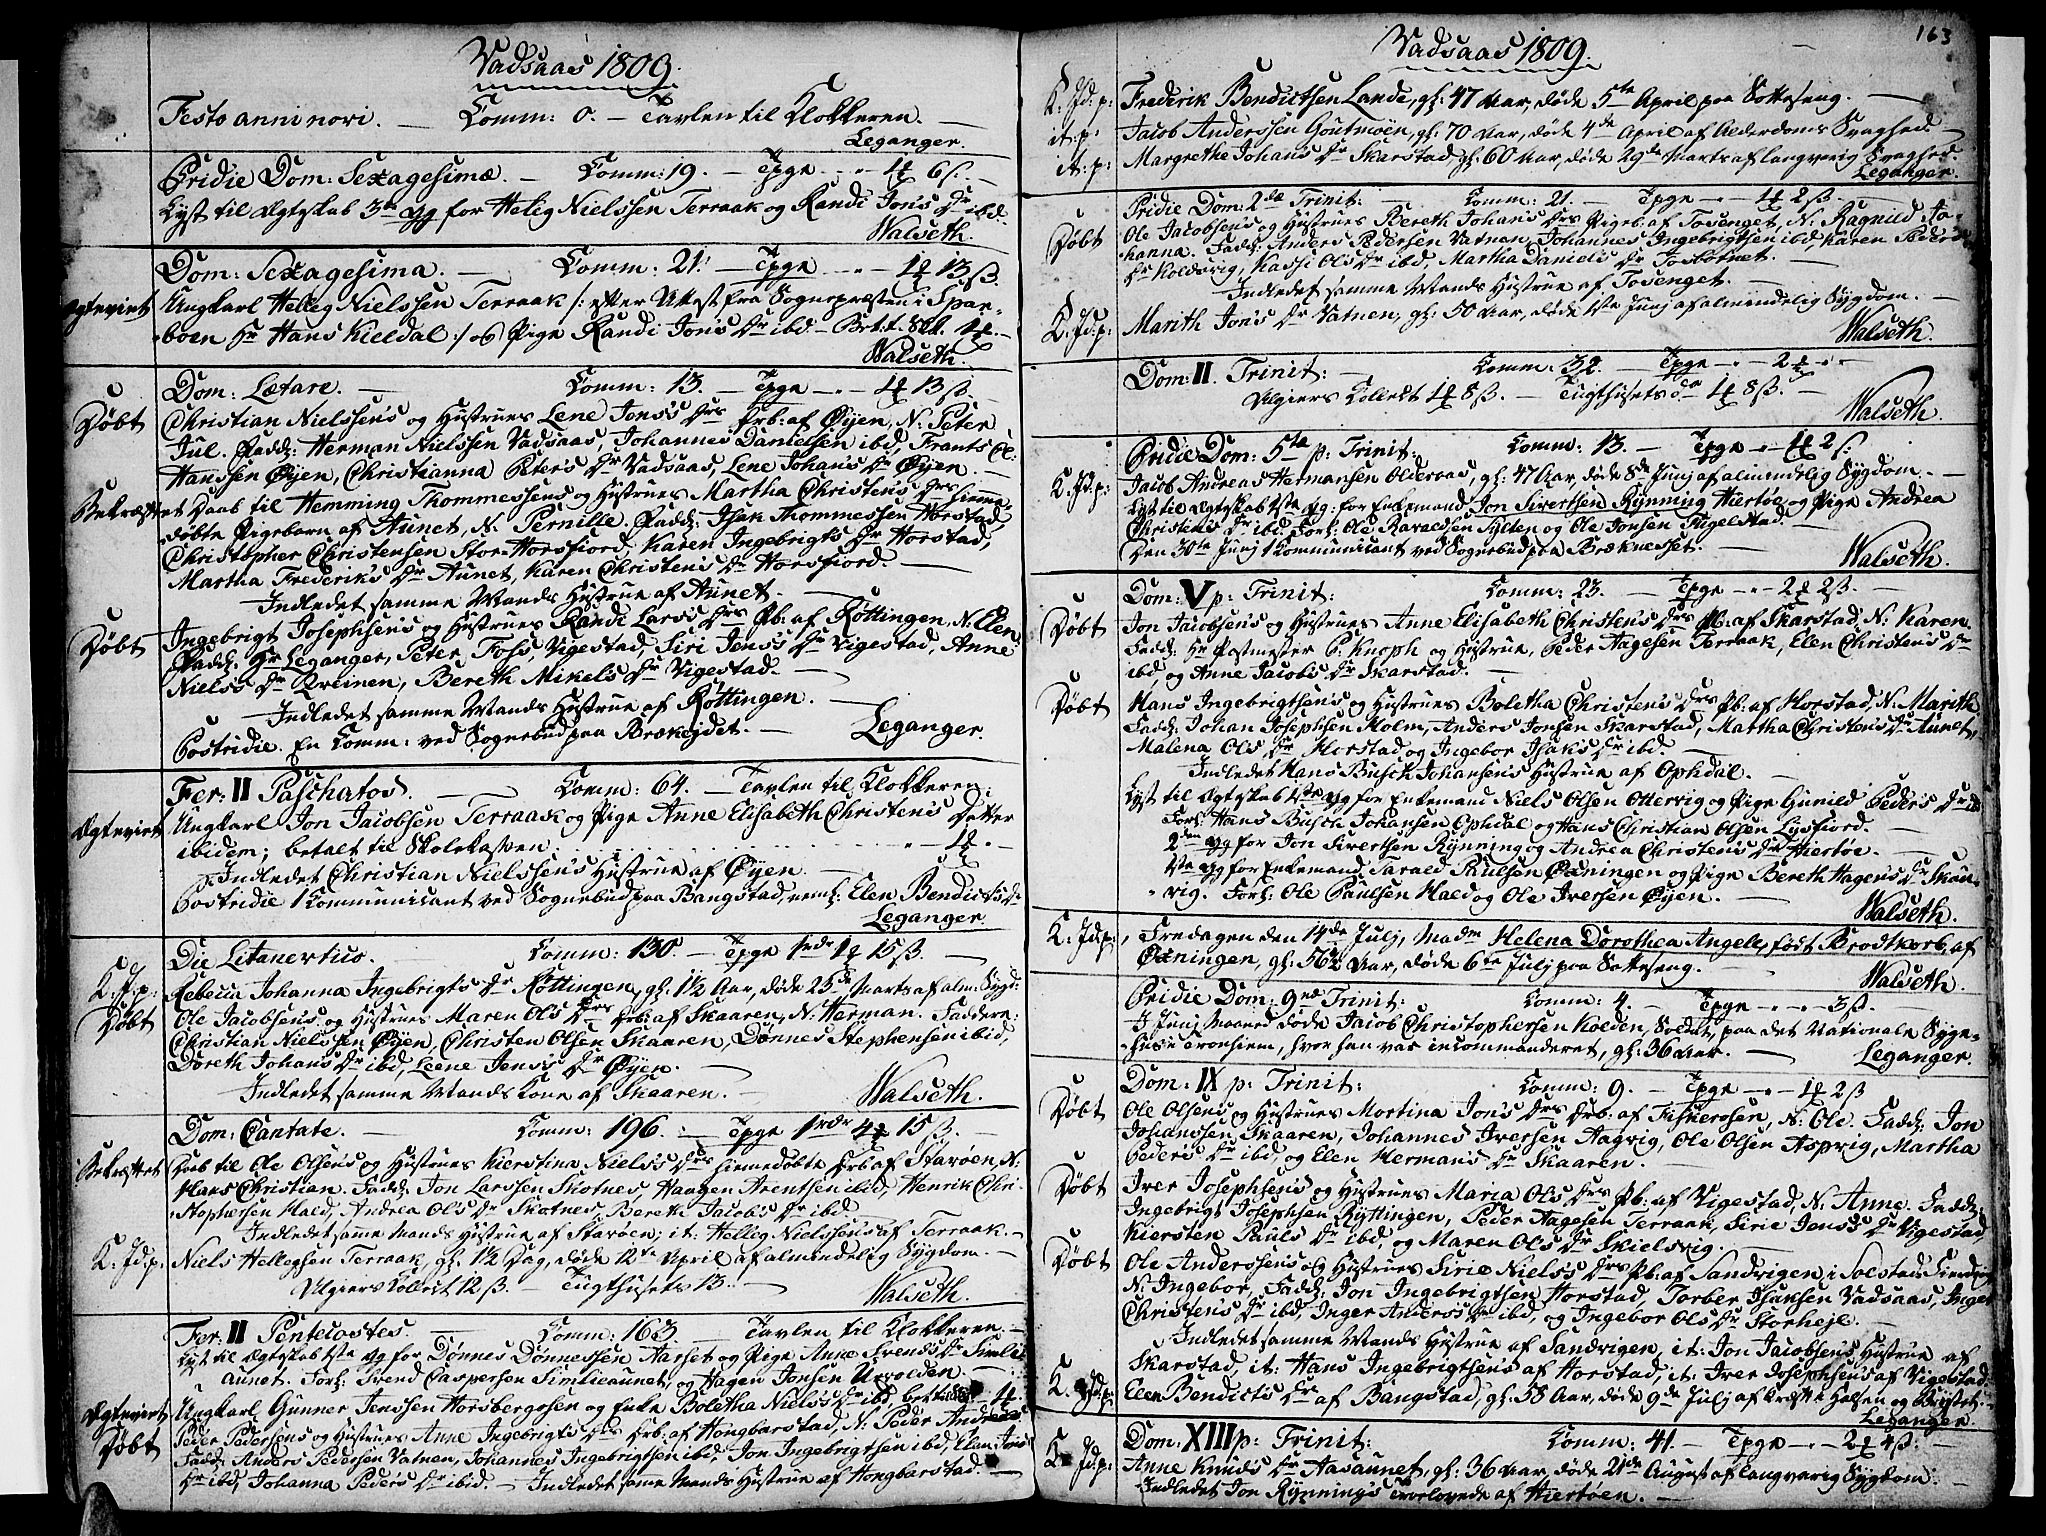 Vadsaas 1809.
Festo anni novi. — Comm: 0. — Tavlen til Klokkeren. —
Leganger.
Pridie Dom: Sexagesimæ. — Comm: 19. — Tpge
Lyst til Ægteskab 3die gg for Helleg Nielssen Terraak og Randi Jon's Dr ibd.
Walseth.
Dom: Sexagesima. — Comm: 21. — Tpge
Ægteviet Ungkarl Helleg Nielssen Terraak /: efter Attest fra Sognepræsten i Spar-
boen Hr Hans Kieldal :/ og Pige Randi Jon's Dr ibd
Walseth.
Dom: Lætare. — Comm: 13. — Tpge
Døbt Christian Nielssens og Hustrues Lene Jens's Drs Drb: af Øyen, N: Peter
Jul. Fadd: Herman Nielssen Vadsaas, Johannes Danielsen ibd, Frants
Hanssen Øyen, Christianna Peter's Dr Vadsaas, Lene Johan's Dr Øyen. —
Bekræftet Daab til Hemming Thommessens og Hustrues Martha Christen's Drs hiemme-
døbte Pigebarn af Aunet, N: Pernille. Fadd: Isak Thommessen Horstad,
Christopher Christensen Store Horsfiord, Karen Ingebrigts Dr Horstad,
Martha Frederik's Dr Aunet, Karen Christens Dr Horsfiord. —
Indledet samme Mands Hustrue af Aunet. —
Døbt Ingebrigt Josephsens og Hustrues Randi Lars's Drs Pb: af Røttingen, N: Elen.
Fadd: Hr Leganger, Peter Foss, Vigestad, Siri Jens's Dr Vigestad, Anne
Niels's Dr Kreinen, Bereth Mikels Dr Vigestad. —
Indledet samme Mands Hustrue af Røttingen. —
Postridie. En Comm: ved Sognebud paa Brækeidet. —
Leganger.
Fer: II Paschatos. — Comm: 64. — Tavlen til Klokkeren.
Ægteviet Ungkarl Jon Jacobsen Terraak og Pige Anne Elisabeth Christen's Datter
ibidem; betalt til Skolekassen
Indledet Christian Nielssen's Hustrue af Øyen.
Postridie 1 Kommunicant ved Sognebud paa Bangstad, neml: Elen Bendict's Dr
Leganger.
Die Litanertius. — Comm: 130. — Tpge 1rdr 1 15ß. —
K: Jd: p: Rebecca Johanna Ingebrigts Dr Røttingen, gl: 1½ Aar, døde 25de Marts af alm: Sygd:
Døbt Ole Jacobsens og Hustrues Maren Ols Drs Drb: af Skaaren, N: Herman. Faddere:
Christian Nielssen Øyen, Christen Olsen Skaaren, Dønnes Stephensen ibid,
Doreth Johans Dr ibd, Leene Jens's Dr Øyen. —
Indledet samme Mands Kone af Skaaren. —
Walseth.
Dom: Cantate. — Comm: 196. — Tpge 1rdr 4 15ß. —
Bekræftet Daab til Ole Olsens og Hustrues Kierstina Niels's Drs hiemedøbte Drb: af Starøen, N:
Hans Christian. Fadd: Jon Larssen Skotnes, Haagen Arentsen ibid, Henrik Chri-
stophersen Hald, Andrea Ols Dr Skotnes, Bereth Jacobs Dr ibd.
Indledet samme Mands Hustrue af Starøen; it: Helleg Nielssens af Terraak. —
K: Jd: p: Niels Hellegsen Terraak, gl: 1½ Dag, døde 12te April af almindelig Sygdom. —
Algiers Collect 12ß. — Tugthusets 13. —
Walseth.
Fer: II Pentecostes. — Comm: 163. — Tavlen til Klokkeren. —
Lyst til Ægteskab 1ste gg for Dønnes Dønnessen Aarset og Pige Anne Svends Dr Simlie
aunet. Forl: Svend Caspersen Simlieaunet, og Hagen Jonsen
Ægteviet Ungkarl Gunner Jenssen Horsbergosen og Enke Boletha Niels's Dr ibd
Døbt Peder Pedersens og Hustrues Anne Ingebrigts Drs Drb: af Hongbarstad, N: Peder Andreas.
Fadd: Anders Pedersen Vatnen, Johannes Ingebrigtsen ibd, Jon Ingebrigtsen ibd, Elen Jons
Dr ibd, Johanna Peders Dr ibd. — Indledet samme Mands Hustrue af Hongbarstad. —
163
Vadsaas 1809.
K: Jd: p: Frederik Bendictsen Lande, gl: 47 Aar, døde 5te April paa Sotteseng. —
it: p: Jacob Anderssen Goutmoen, gl: 70 Aar, døde 4de April af Alderdoms Svaghed. —
it: p: Margrethe Johan's Dr Skarstad, gl: 60 Aar, døde 29de Marts af langvarig Svaghed.
Leganger.
Pridie Dom: 2da Trinit: Comm: 21. — Tpge
Døbt Ole Jacobsen's og Hustrues Bereth Johan's Drs Pigeb: af Tosenget, N: Ragnild Jo-
hanna. Fadd: Anders Pedersen Vatnen, Johannes Ingebrigtsen ibd, Karen Peder's
Dr Koldvig, Kassi Ols Dr ibd, Martha Daniels Dr Tosbotnet. —
Indledet samme Mands Hustrue af Tosenget. —
K: Jd: p: Marith Jon's Dr Vatnen, gl: 50 Aar, døde 1ste Junj af almindelig Sygdom. —
Walseth.
Dom: II. Trinit: — Comm: 32. — Tpge
Algiers Collect 1 8ß. — Tugthusets do 1 8ß. —
Walseth.
Pridie Dom: 5ta p: Trinit: Comm: 13. — Tpge
K: Jd: p: Jacob Andreas Hermansen Oldervaas, gl: 47 Aar, døde 8de Junj af almindelig Sygdom. —
Lyst til Ægteskab 1ste gg: for Enkemand Jon Sivertsen Rynning Hiertøe og Pige Andrea
Christen's Dr ibd. Forl: Ole Havaldsen Sylten og Ole Jonsen Tilgelstad. —
Den 30te Junj 1 Kommunicant ved Sognebud paa Bræknesset. —
Walseth.
Dom: V p: Trinit: Comm: 23. — Tpge
Døbt Jon Jacobsens og Hustrues Anne Elisabeth Christen's Drs Pb: af Skarstad, N: Karen.
Fadd: Hr Postmester P: Knoph og Hustrue, Peder Aagesen Terraak, Elen Christen's Dr
ibd, og Anne Jacobs Dr Skarstad. —
Døbt Hans Ingebrigtsen's og Hustrues Boletha Christen's Drs Pb: af Horstad, N: Marith
Fadd: Johan Josephsen Holm, Anders Jonsen Skarstad, Martha Christens Dr Aunet,
Malena Ols Dr Horstad og Ingebor Isaks Dr ibd. —
Indledet Hans Busch Johansen's Hustrue af Ophdal. —
Lyst til Ægteskab 1ste gg for Enkemand Niels Olsen Ottervig og Pige Gunild Peder's Dr ibd
Forl: Hans Busch Johansen Ophdal og Hans Christian Olsen Lysfiord. —
2den gg for Jon Sivertsen Rynning og Andrea Christens Dr Hiertøe. —
1ste gg for Enkemand Tarald Paulsen Øxningen og Pige Bereth Hagens Dr Skaan-
vig. Forl: Ole Paulsen Hald og Ole Iversen Øyen. —
Walseth.
K: Jd: p: Fredagen den 14de Julj, Madm Helena Dorothea Angell, født Brodtkorb, af
Øxningen, gl: 56½ Aar, døde 6te Julj paa Sotteseng. —
Walseth.
Pridie Dom: 9næ Trinit: Comm: 4. — Tpge — 3ß. —
I Junj Maaned døde Jacob Christophersen Kolden, Soldat, paa det Nationale Syge-
huus i Tronhiem, hvor han var incommanderet, gl: 36 Aar. —
Leganger.
Dom: IX p: Trinit: Comm: 9. — Tpge
Døbt Ole Olsens og Hustrues Mortina Jon's Drs Drb: af Fiskerosen, N: Ole. Fadd: Jon
Johanssen Skaaren, Johannes Iversen Aagvig, Ole Olsen Aspvig, Martha
Peders Dr ibd, og Elen Herman's Dr Skaaren. —
Døbt Iver Josephsen's og Hustrues Maria Ols Drs Pb: af Vigestad, N: Anne. Fadd:
Ingebrigt Josephsen Ryttingen, Peder Aagesen Terraak, Sirie Jens's Dr Vigestad,
Kiersten Pauls Dr ibd, og Maren Ols Dr Skielsvig. —
Døbt Ole Anderssens og Hustrues Sirie Niels's Drs Pb: af Sandvigen, i Solstad
N: Ingebor, Fadd: Jon Ingebrigtsen Horstad, Torber Isaksen Vadsaas, Inger
Christen's Dr ibd, Inger Anders's Dr ibd, og Ingebor Ols Dr Storheje. —
Indledet samme Mands Hustrue af Sandvigen, it: Jon Jacobsens Hustrue af
Skarstad, it: Hans Ingebrigtsen's af Horstad, it: Iver Josephsen's af Vigestad.
K: Jd: p: Elen Bendicts Dr af Bangstad, gl: 58 Aar, døde 9de Julj af Kræft i Halsen og Brystet. —
Leganger.
Dom: XIII p: Trinit: Comm: 41. — Tpge
K: Jd: p: Anne Knuds Dr Aasaunet, gl: 36 Aar, døde 21de August af langvarig Sygdom. —
Indledet Jon Rynnings Trolovede af Hiertøen. —